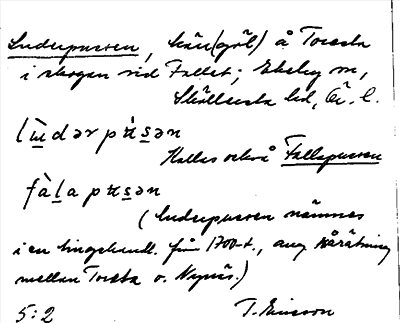 Luderpussen, kärr(göl) å Torsta
i skogen vid Fallet; Ekeby sn,
Sköllersta hd, Ör. l.
lu̱dər pʉs̱ən
Kallas också Fallapussen
fàḻa pʉs̱ən
(Luderpussen nämnes
i en tingshandl. från 1700-t., ang rårätning
mellan Torsta o. Nynäs.)
5:2 T. Ericsson